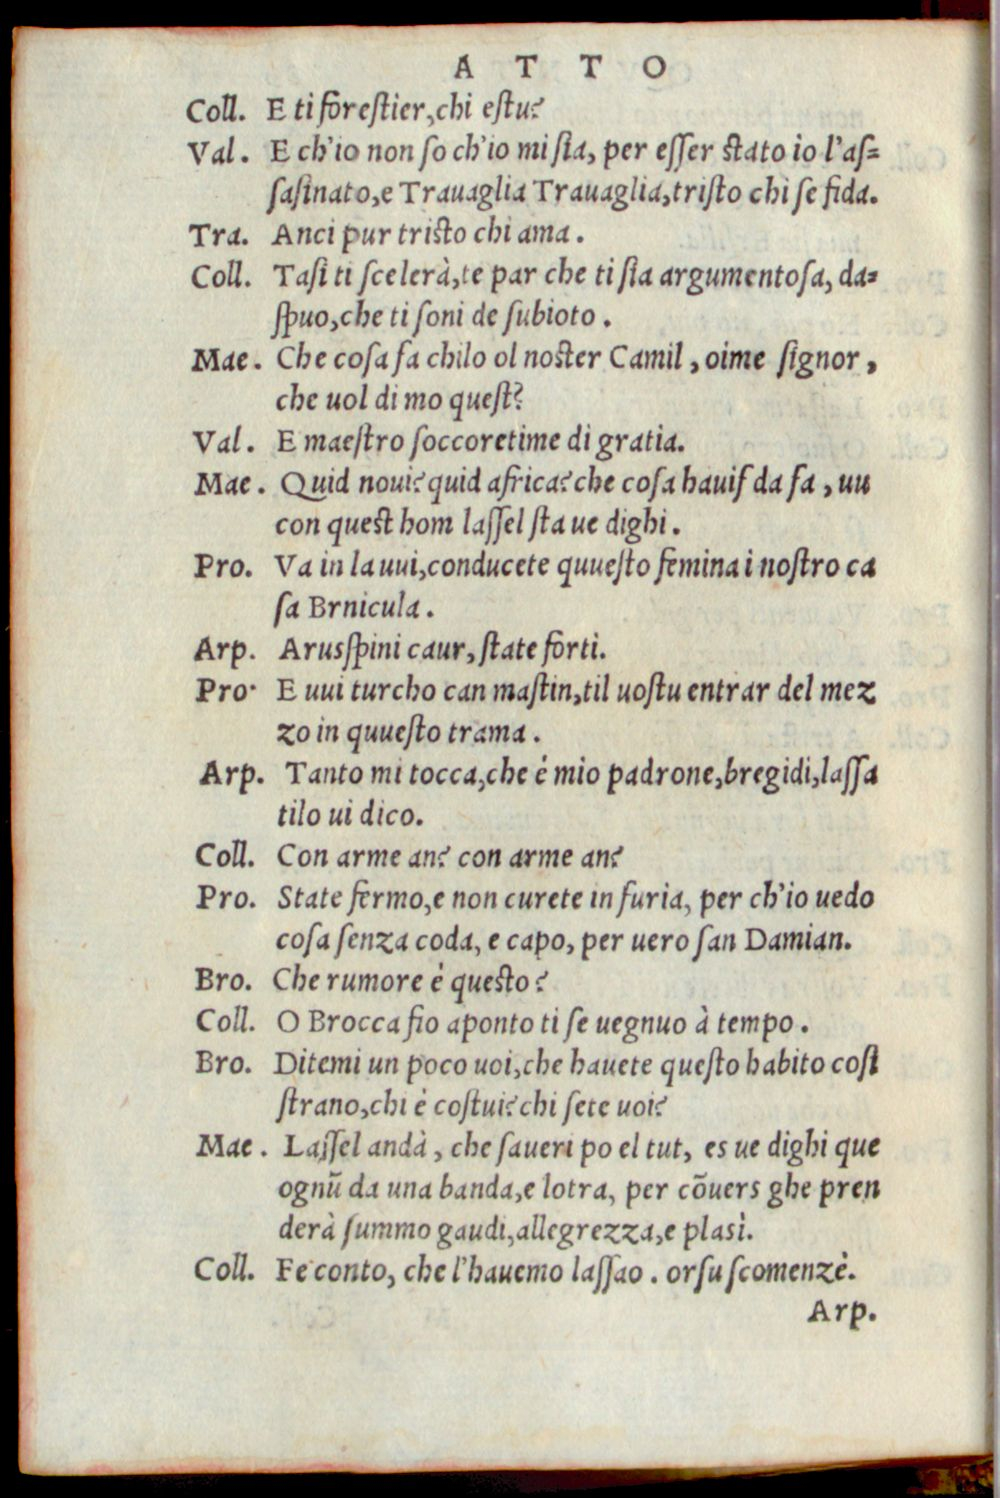 A T T O
Coll. E ti forestier, chi estu?
Val. E ch'io non so ch'io mi sia, per esser stato io l'as=
sasinato, e Travaglia Travaglia, tristo chi se fida.
Tra. Anci pur tristo chi ama.
Coll. Tasi ti scelerà, te par che ti sia argumentosa, da=
spuo, che ti soni de subioto.
Mae. Che cosa fa chilo ol noster Camil, oime signor,
che uol di mo quest?
Val. E maestro soccoretime di gratia.
Mae. Quid noui? quid africa? che cosa hauif da fa, uu
con quest hom lassel sta ue dighi.
Pro. Va in la uui, conducete quuesto femina i nostro ca
sa Brnicula.
Arp. Arusspini caur, state forti.
Pro. E uui turcho can mastin, til uostu entrar del mez
zo in quuesto trama.
Arp. Tanto mi tocca, che é mio padrone, bregidi, lassa
tilo ui dico.
Coll. Con arme an? con arme an?
Pro. State fermo, e non curete in furia, per ch'io uedo
cosa senza coda, e capo, per uero san Damian.
Bro. Che rumore è questo?
Coll. O Brocca fio aponto ti se uegnuo à tempo.
Bro. Ditemi un poco uoi, che hauete questo habito cosi
strano, chi è costui? chi sete uoi?
Mae. Lassel andà, che saueri po el tut, es ue dighi que
ognũ da una banda, e lotra, per cõuers ghe pren
derà summo gaudi, allegrezza, e plasì.
Coll. Fe conto, che l'hauemo lassao. orsu scomenzè.
Arp.